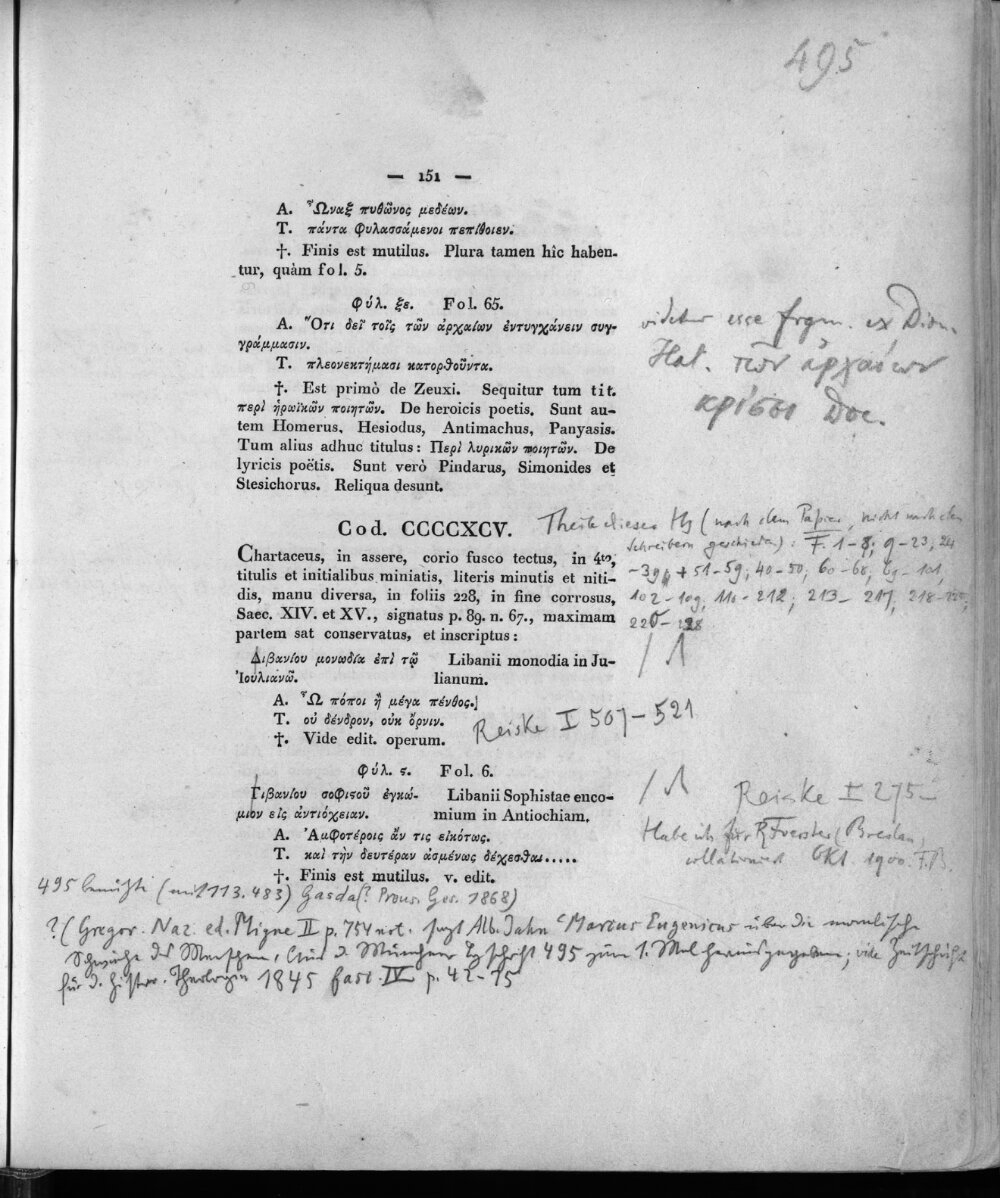 495
— 151 —
A. Ὦναξ πυθῶνος μεδέων.
T. πάντα φυλασσάμενοι πεπίθοιεν.
†. Finis est mutilus. Plura tamen hîc haben-
tur, quàm fol. 5.
Φύλ. ξε. Fol. 65.
A. Ὅτι δεῖ τοῖς τῶν ἀρχαίων ἐντυγχάνειν συγ-
γράμμασιν.
videtur esse frgm. ex Dion.
Hal. τῶν ἀρχαίων
κρίσει
T. πλεονεκτήμασι κατορθοῦντα.
†. Est primò de Zeuxi. Sequitur tum tit.
περὶ ἡρωϊκῶν ποιητῶν. De heroicis poetis. Sunt au-
tem Homerus, Hesiodus, Antimachus, Panyasis.
Tum alius adhuc titulus: Περὶ λυρικῶν ποιητῶν. De
lyricis poëtis. Sunt verò Pindarus, Simonides et
Stesichorus. Reliqua desunt.
Cod. CCCCXCV.
Theile dieser Hs (nach dem Papier, nicht nach den
Schreibern geschieden): F. 1–8; 9–23; 24
–39 + 51–59; 40–50; 60–68; 69–101,
102–109, 110–212; 213–217, 218–
228
Chartaceus, in assere, corio fusco tectus, in 4to,
titulis et initialibus miniatis, literis minutis et niti-
dis, manu diversa, in foliis 228, in fine corrosus,
Saec. XIV. et XV., signatus p. 89. n. 67., maximam
partem sat conservatus, et inscriptus:
Διβανίου μονωδία ἐπὶ τῷ Libanii monodia in Ju-
Ἰουλιανῷ. lianum.
A. Ὦ πόποι ἢ μέγα πένθος.
T. οὐ δένδρον, οὐκ ὄρνιν.
†. Vide edit. operum.
Reiske I 507–521
Φύλ. ϛ. Fol. 6.
Γιβανίου σοφιστοῦ ἐγκώ- Libanii Sophistae enco-
μιον εἰς ἀντιόχειαν. mium in Antiochiam.
Reiske I 275–
Habe ich für R. Foerster (Breslau)
collationiert Okt. 1900. F.B.
A. Ἀμφοτέροις ἄν τις εἰκότως.
T. καὶ τὴν δευτέραν ἀσμένως δέχεσθαι.....
†. Finis est mutilus. v. edit.
495 benützte (mit 113. 483) Gasda (? Progr. 1868)
? (Gregor. Naz. ed. Migne II p. 754 not. sagt Alb. Jahn "Marcus Eugenicus über die moralische
Schwäche des Menschen, aus d. Münchner Hschrift 495 zum 1. Mal herausgegeben; vide Zeitschrift
für d. histor. Theologie 1845 fasc. IV p. 42–75